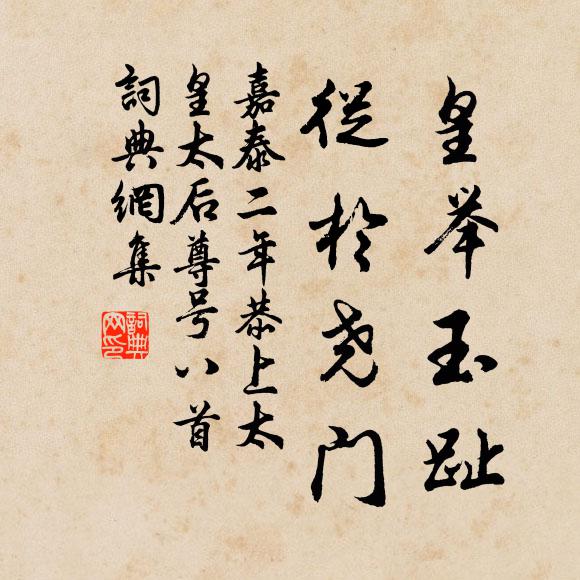 皇举玉趾
從於尧门
嘉泰二年恭上太
皇太后尊号八首
詞典網集
詞典网印